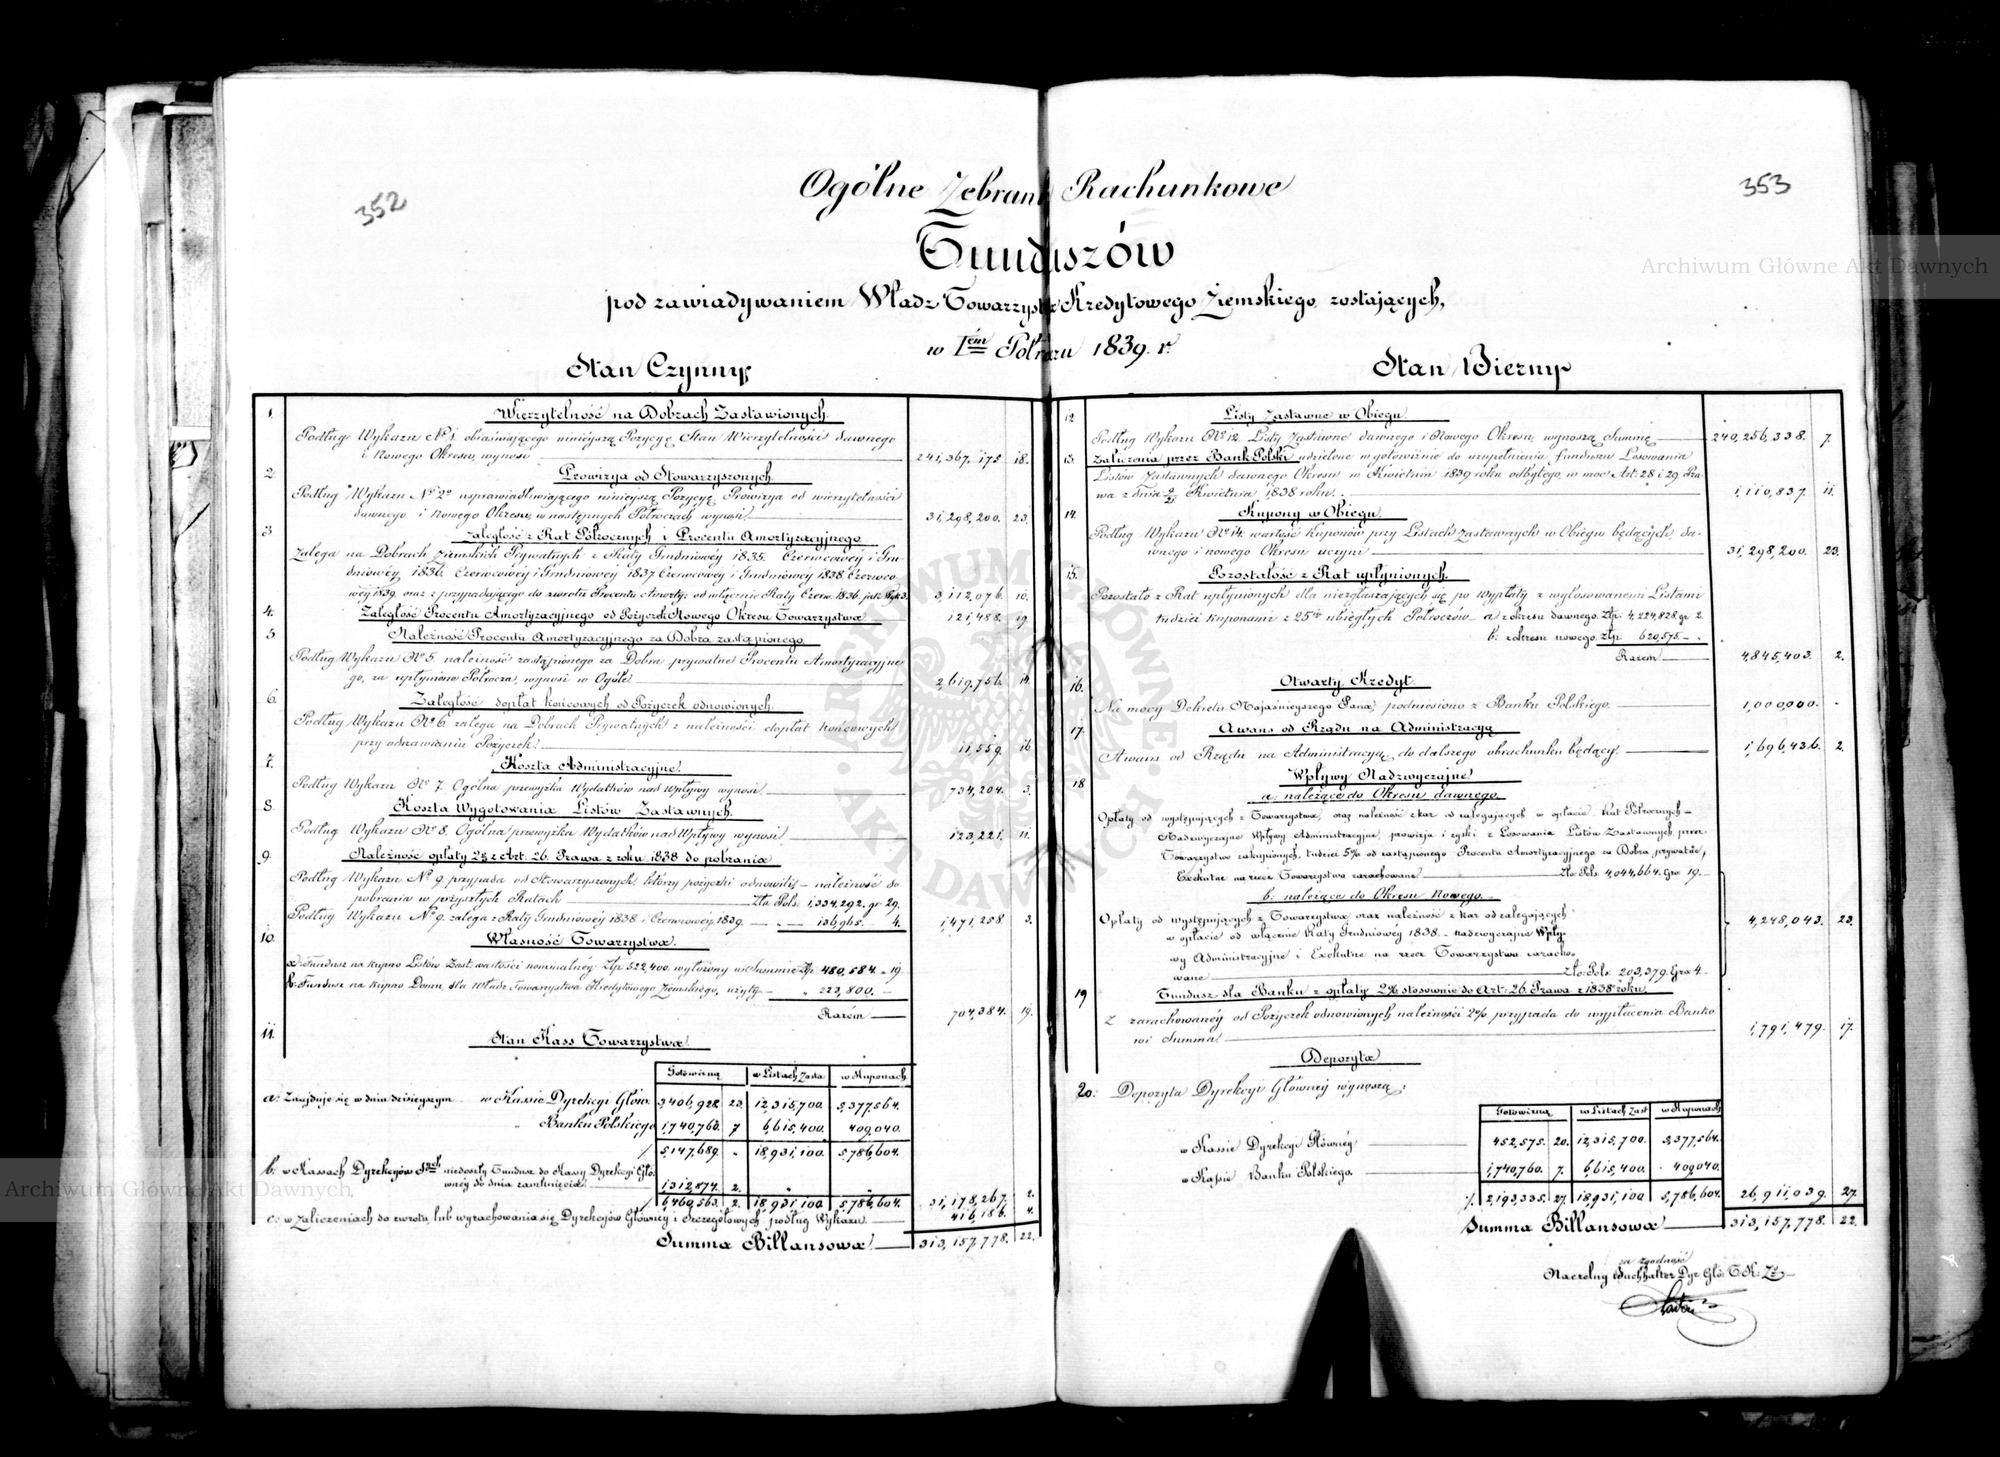 352
353
Ogólne Zebranie Rachunkowe
Funduszów
pod zawiadywaniem Władz Towarzystwa Kredytowego Ziemskiego zostających,
w Iém Półroczu 1839. r.
Stan Czynny
1. Wierzytelność na Dobrach Zastawionych.
Podług Wykazu No 1. obiaśniającego niniéjszą Pozycyę, Stan Wierzytelności dawnego
i Nowego Okresu, wynosi 241,367,175 18.
2. Prowizya od Stowarzyszonych.
Podług Wykazu No 2o usprawiedliwiającego niniejszą Pozycyę, Prowizya od wierzytelności
dawnego i Nowego Okresu, w następnych Półroczach wynosi 31,298,200. 23.
3. Zaległość z Rat Półrocznych i Procentu Amortyzacyjnego
Zalega na Dobrach Ziemskich Prywatnych z Raty Grudniowéy 1835. Czerwcowéy i Gru-
dniowéy 1836. Czerwcowéy i Grudniowéy 1837 Czerwcowéy i Grudniowéy 1838. Czerwco-
wéy 1839. oraz z przypadającego do zwrotu Procentu Amortyz: od włącznie Raty Czerw. 1836. 3,112,076. 10.
4. Zaległość Procentu Amortyzacyjnego od Pożyczek Nowego Okresu Towarzystwa 121,488. 19.
5. Należność Procentu Amortyzacyjnego za Dobra zastąpionego.
Podług Wykazu No 5. należność zastąpionego za Dobra prywatne Procentu Amortyzacyjne
go, za upłynione Półrocza, wynosi w Ogóle 2,619,756. 14.
6. Zaległość dopłat końcowych od Pożyczek odnowionych.
Podług Wykazu No 6. zalega na Dobrach Prywatnych z należności dopłat końcowych
przy odnawianiu Pożyczek 11,559. 16.
7. Koszta Administracyjne.
Podług Wykazu No 7. Ogólna przewyżka Wydatków nad Wpływy wynosi 734,204. 3.
8. Koszta Wygotowania Listów Zastawnych.
Podług Wykazu No 8. Ogólna przewyżka Wydatków nad Wpływy wynosi 123,221. 11.
9. Należność opłaty 2% z Art: 26. Prawa z roku 1838 do pobrania
Podług Wykazu No 9. przypada od Stowarzyszonych, którzy pożyczki odnowili, – należność do
pobrania w przyszłych Ratach Zło. Pols: 1,334,292. gr 29.
Podług Wykazu No 9. zalega z Raty Grudniowéy 1838 i Czerwcowéy 1839. 136,965. 4. 1,471,258 3.
10. Własność Towarzystwa.
a. Fundusz na kupno Listów Zast: wartości nominalnéy Złp. 522,400. wyłożony w Summie Złp. 480,584. 19
b. Fundusz na kupno Domu, dla Władz Towarzystwa Kredytowego Ziemskiego, użyty 223,800.
Razem 704,384. 19.
11. Stan Kass Towarzystwa
Gotowizną w Listach Zasta w Kuponach
a. Znajduje się w dniu dzisiejszym w Kassie Dyrekcyi Głów. 3,406,928 23. 12,315,700. 5,377,564.
Banku Polskiego 1,740,760. 7 6,615,400. 409,040.
5,147,689. 18,931,100. 5,786,604.
b. w Kassach Dyrekcyów niedoszły Fundusz do Kassy Dyrekcyi Głó-
wnéy do dnia zamknięcia 1,312,874. 2.
6,460,563. 2. 18,931,100 5,786,604. 31,178,267. 2.
c. w Zaliczeniach do zwrotu, lub wyrachowania się Dyrekcyów Głównéy i Szczegółowych podług Wykazu 416,186. 4.
Summa Billansowa 313,157,778. 22.
Stan Bierny
12 Listy Zastawne w Obiegu
Podług Wykazu No 12. Listy Zastawne dawnego i Nowego Okresu, wynoszą Summę 240,256,338. 7.
13. Zaliczenia przez Bank Polski udzielone w gotowiźnie do uzupełnienia funduszu Losowania
Listów Zastawnych dawnego Okresu w Kwietniu 1839 roku odbytego, w moc Art: 28 i 29 Pra-
wa z dnia 9/21 Kwietnia 1838 roku 1,110,837. 11.
14. Kupony w Obiegu.
Podług Wykazu No 14. wartość Kuponów przy Listach Zastawnych w Obiegu będących, da-
wnego i nowego Okresu uczyni 31,298,200. 23.
15. Pozostałość z Rat upłynionych.
Pozostało z Rat upłynionych dla niezgłaszających się po wypłaty z wylosowanemi Listami
tudzież kuponami z 25ciu ubiegłych Półroczów a z okresu dawnego Złp. 4,224,828 gr 2.
b. z okresu nowego. Złp. 620,575
Razem 4,845,403. 2.
16. Otwarty Kredyt.
Na mocy Dekretu Najaśniejszego Pana, podniesiono z Banku Polskiego. 1,000,000.
17. Awans od Rządu na Administracyą
Awans od Rządu na Administracyą, do dalszego obrachunku będący. 1,696,436. 2.
18 Wpływy Nadzwyczajne
a. należące do Okresu dawnego.
Opłaty od występujących z Towarzystwa, oraz należność z kar od zalegających w opłacie Rat Półrocznych –
Nadzwyczajne Wpływy Administracyjne, prowizja i zyski z Losowania Listów Zastawnych przez
Towarzystwo zakupionych, tudzież 5% od zastąpionego Procentu Amortyzacyjnego za Dobra prywatne,
Exekutne na rzecz Towarzystwa zarachowane Zło. Pols: 4,044,664. Gro 19.
b. należące do Okresu Nowego.
Opłaty od występujących z Towarzystwa oraz należność z kar od zalegających
w opłacie od włącznie Raty Grudniowéy 1838. – nadzwyczajne Wpły-
wy Administracyjne i Exekutne na rzecz Towarzystwa zaracho-
wane Zło: Pols: 203,379. Gro 4. 4,248,043. 23.
19 Fundusz dla Banku z opłaty 2% stosownie do Art: 26. Prawa z 1838 roku.
Z zarachowanéy od Pożyczek odnowionych należności 2%. przypada do wypłacenia Banko
wi Summa 1,791,479. 17.
Depozyta
20. Depozyta Dyrekcyi Głównéy wynoszą:
Gotowizną w Listach Zast w Kuponach
w Kassie Dyrekcyi Głównéy 452,575. 20. 12,315,700. 5,377,564.
w Kassie Banku Polskiego. 1,740,760. 7. 6,615,400. 409,040.
2,193,335. 27. 18,931,100 5,786,604. 26,911,039. 27.
Summa Billansowa 313,157,778. 22.
za zgodność
Naczelny Buchhalter Dyr: Głó: T. K: Z
Archiwum Główne Akt Dawnych
Archiwum Główne Akt Dawnych
ARCHIWUM GŁÓWNE AKT DAWNYCH